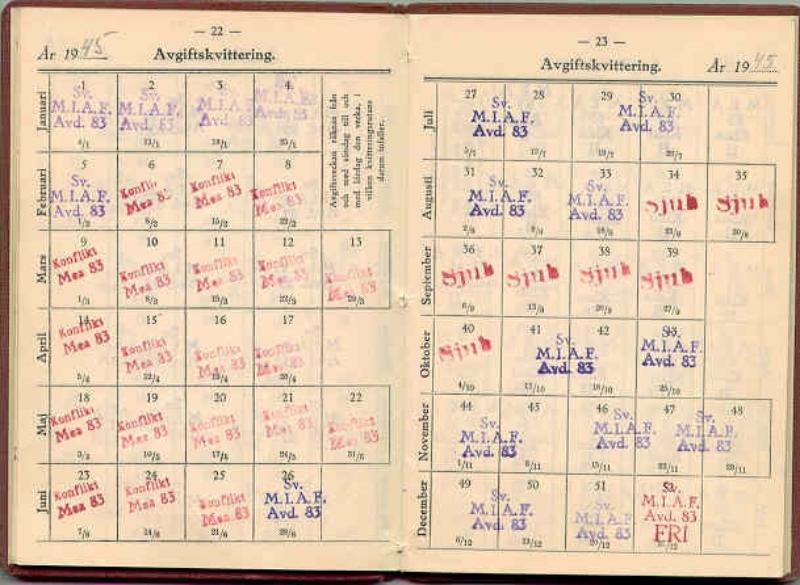 — 22 —
År 1945
Avgiftskvittering.
Avgiftsveckan räknas från och med söndag till och med lördag den vecka, i vilken kvitteringsrutans datum infaller.
Januari
1 2 3 4
Sv. Sv. Sv. Sv.
M.I.A.F. M.I.A.F. M.I.A.F. M.I.A.F.
Avd. 83 Avd. 83 Avd. 83 Avd. 83
4/1 25/1
Februari
5 6 7 8
Sv. Konflikt Konflikt Konflikt
M.I.A.F. Mea 83 Mea 83 Mea 83
Avd. 83
1/2 8/2 15/2 22/2
Mars
9 10 11 12 13
Konflikt Konflikt Konflikt Konflikt Konflikt
Mea 83 Mea 83 Mea 83 Mea 83 Mea 83
1/3 8/3 15/3 22/3 29/3
April
14 15 16 17
Konflikt Konflikt Konflikt Konflikt
Mea 83 Mea 83 Mea 83 Mea 83
5/4 12/4
Maj
18 19 20 21 22
Konflikt Konflikt Konflikt Konflikt Konflikt
Mea 83 Mea 83 Mea 83 Mea 83 Mea 83
3/5 10/5 17/5 24/5 31/5
Juni
23 24 25 26
Konflikt Konflikt Konflikt Sv.
Mea 83 Mea 83 Mea 83 M.I.A.F.
Avd. 83
7/6 21/6 28/6
— 23 —
Avgiftskvittering.
År 1945
Juli
27 28 29 30
Sv. Sv.
M.I.A.F. M.I.A.F.
Avd. 83 Avd. 83
5/7 12/7 19/7 26/7
Augusti
31 32 33 34 35
Sv. Sv. Sjuk Sjuk
M.I.A.F. M.I.A.F.
Avd. 83 Avd. 83
2/8 9/8 23/8 30/8
September
36 37 38 39
Sjuk Sjuk Sjuk Sjuk
6/9 13/9 20/9 27/9
Oktober
40 41 42
Sjuk Sv. Sv.
M.I.A.F. M.I.A.F.
Avd. 83 Avd. 83
4/10 11/10 18/10 25/10
November
44 45 46 47 48
Sv. Sv. Sv.
M.I.A.F. M.I.A.F. M.I.A.F.
Avd. 83 Avd. 83 Avd. 83
1/11 8/11 15/11 22/11 29/11
December
49 50 51 52
Sv. Sv. Sv.
M.I.A.F. M.I.A.F. M.I.A.F.
Avd. 83 Avd. 83 Avd. 83
FRI
6/12 13/12 20/12